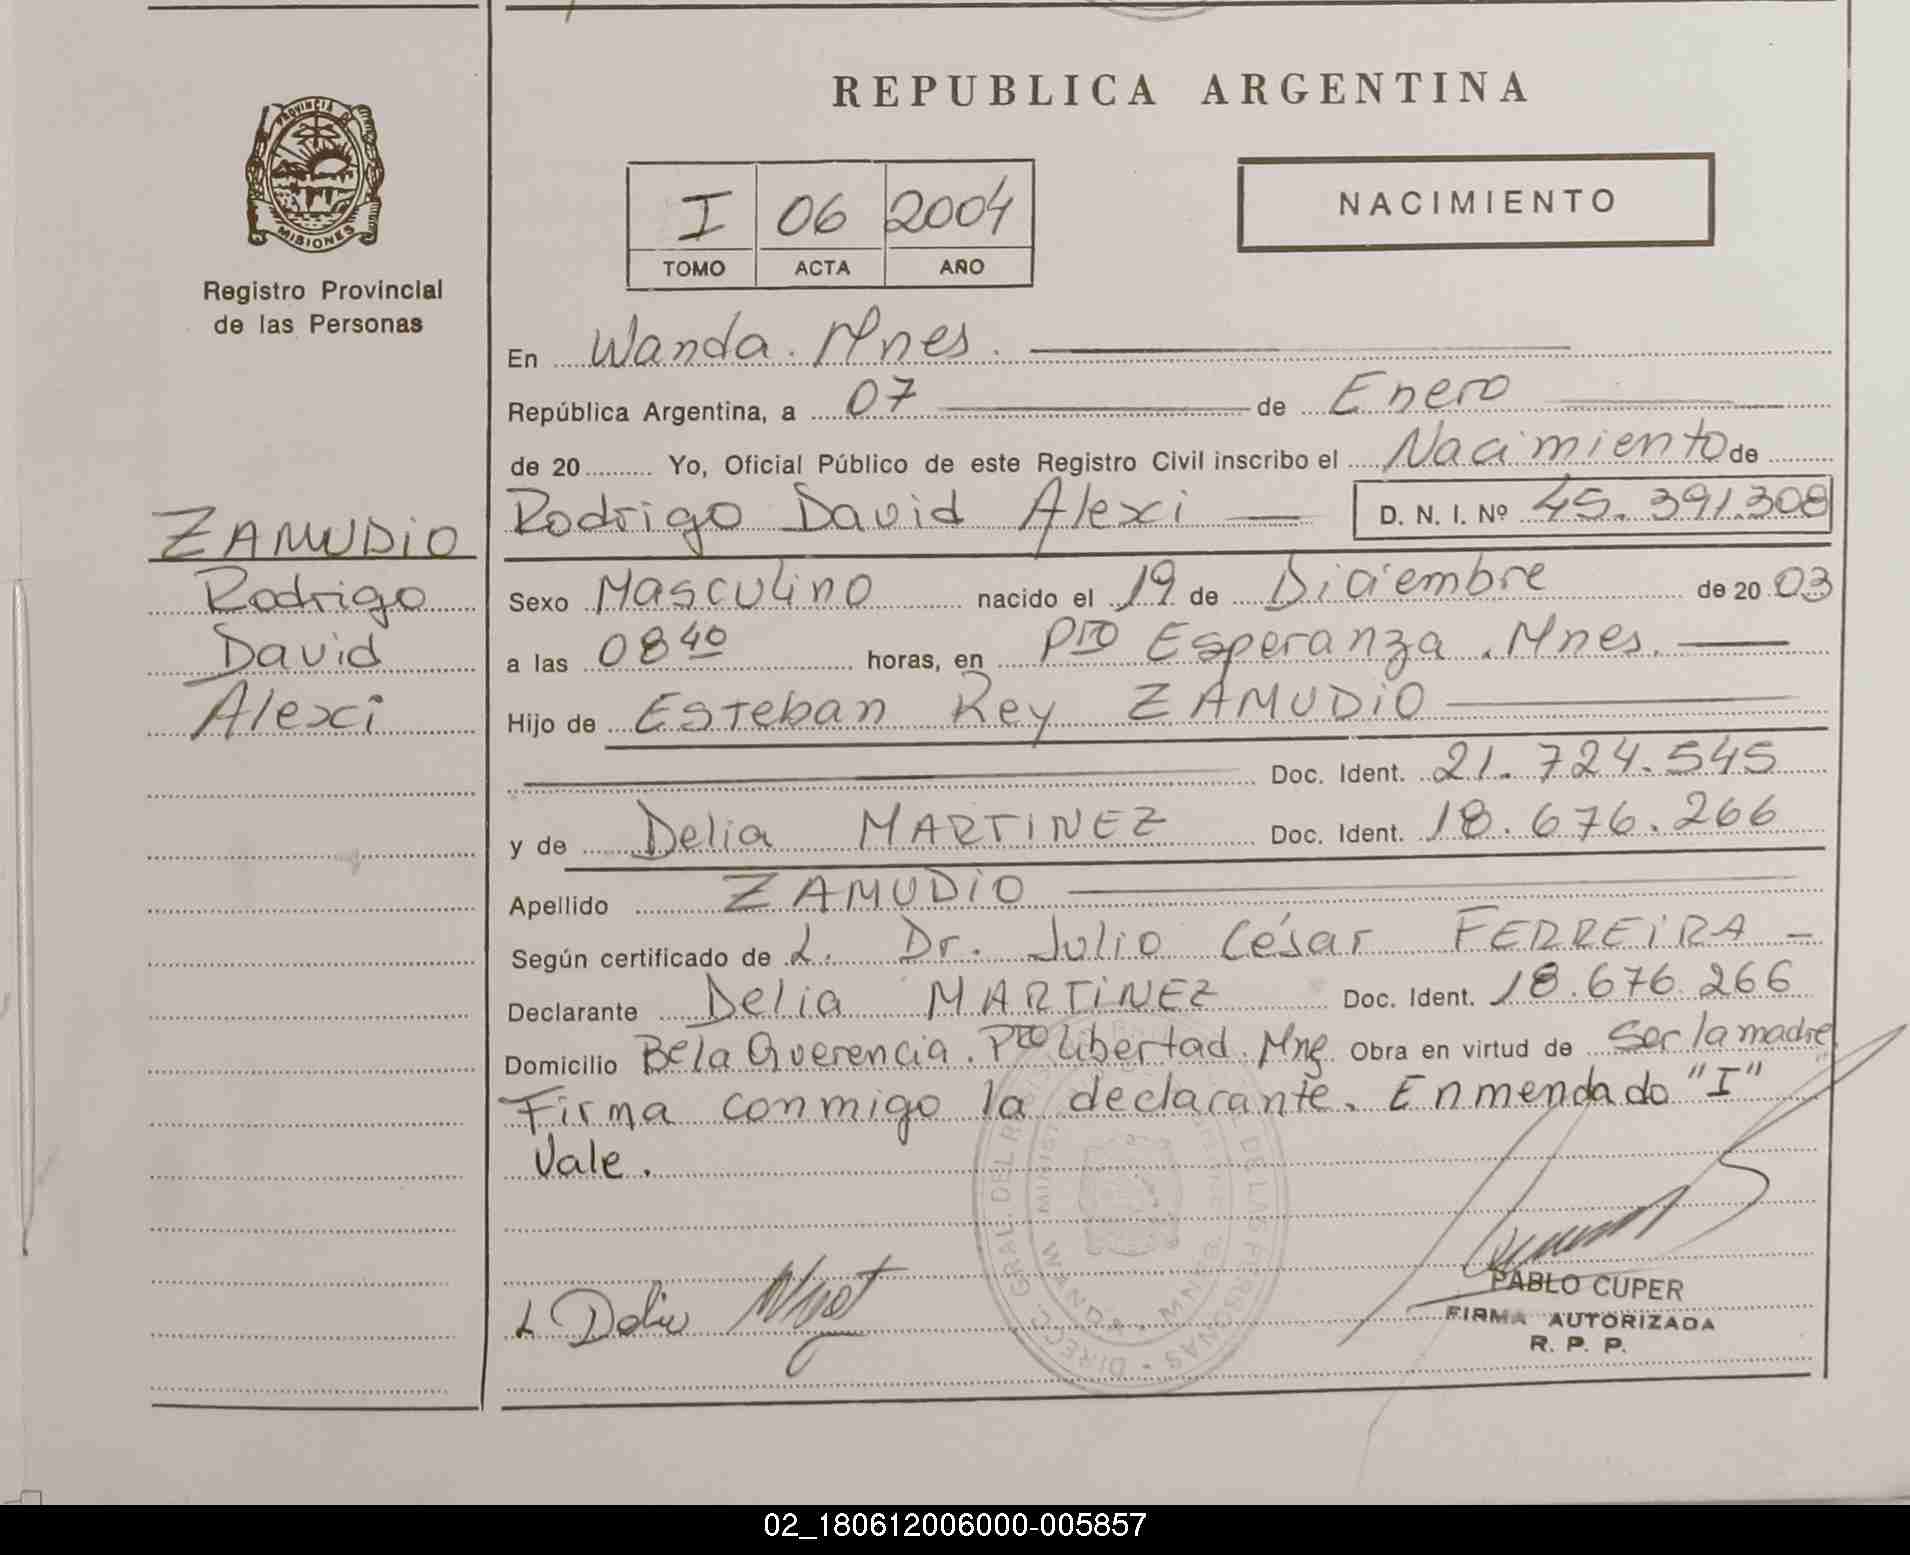 REPUBLICA ARGENTINA
PROVINCIA DE
MISIONES
Registro Provincial
de las Personas
I 06 2004
TOMO ACTA AÑO
NACIMIENTO
En Wanda. Mnes.
República Argentina, a 07 de Enero
de 20 Yo, Oficial Público de este Registro Civil inscribo el Nacimiento de
Rodrigo David Alexi D. N. I. Nº 45.391.308
ZAMUDIO
Rodrigo
David
Alexi
Sexo Masculino nacido el 19 de Diciembre de 20 03
a las 08 40 horas, en Pto Esperanza. Mnes.
Hijo de Esteban Rey ZAMUDIO
Doc. Ident. 21.724.545
y de Delia MARTINEZ Doc. Ident. 18.676.266
Apellido ZAMUDIO
Según certificado de L. Dr. Julio César FERREIRA
Declarante Delia MARTINEZ Doc. Ident. 18.676.266
Domicilio Bela Querencia. Pto Libertad. Mnes Obra en virtud de Ser la madre
Firma conmigo la declarante. Enmendado "I"
Vale.
Delia
PABLO CUPER
FIRMA AUTORIZADA
R. P. P.
02_180612006000-005857